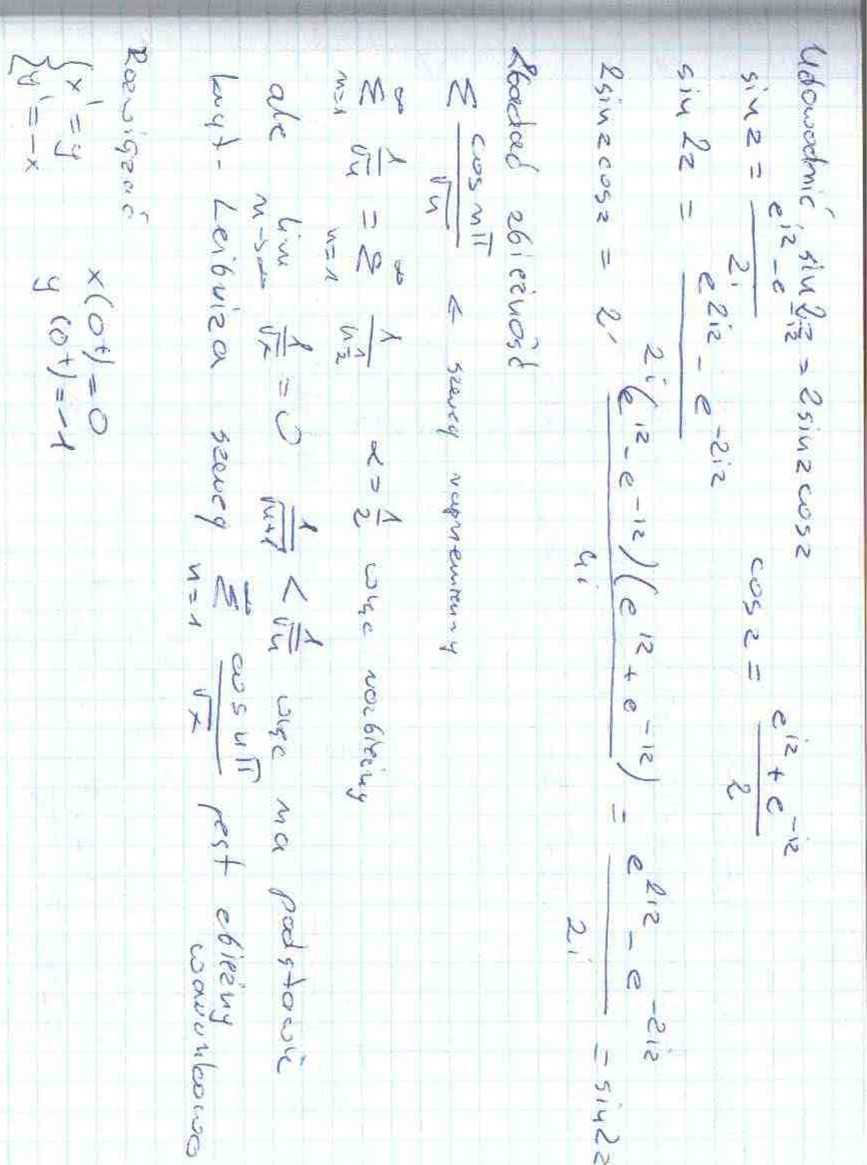 Udowodnić sin2z = 2sinz cosz
sinz = \frac{e^{iz} - e^{-iz}}{2i} cosz = \frac{e^{iz} + e^{-iz}}{2}
sin2z = \frac{e^{2iz} - e^{-2iz}}{2i}
2sinzcosz = 2 · \frac{(e^{iz} - e^{-iz})(e^{iz} + e^{-iz})}{4i} = \frac{e^{2iz} - e^{-2iz}}{2i} = sin2z
Zbadać zbieżność
Σ \frac{cos nπ}{√n} ← szereg naprzemienny
\sum_{n=1}^{∞} \frac{1}{√n} = \sum_{n=1}^{∞} \frac{1}{n^{\frac{1}{2}}} α = \frac{1}{2} więc rozbieżny
ale \lim_{n→∞} \frac{1}{√x} = 0 \frac{1}{\sqrt{n+1}} < \frac{1}{√n} więc na podstawie
kryt. Leibniza szereg \sum_{n=1}^{∞} \frac{cos nπ}{√x} jest zbieżny
warunkowo
Rozwiązać
{ x' = y x(0+) = 0
{ y' = -x y(0+) = -1